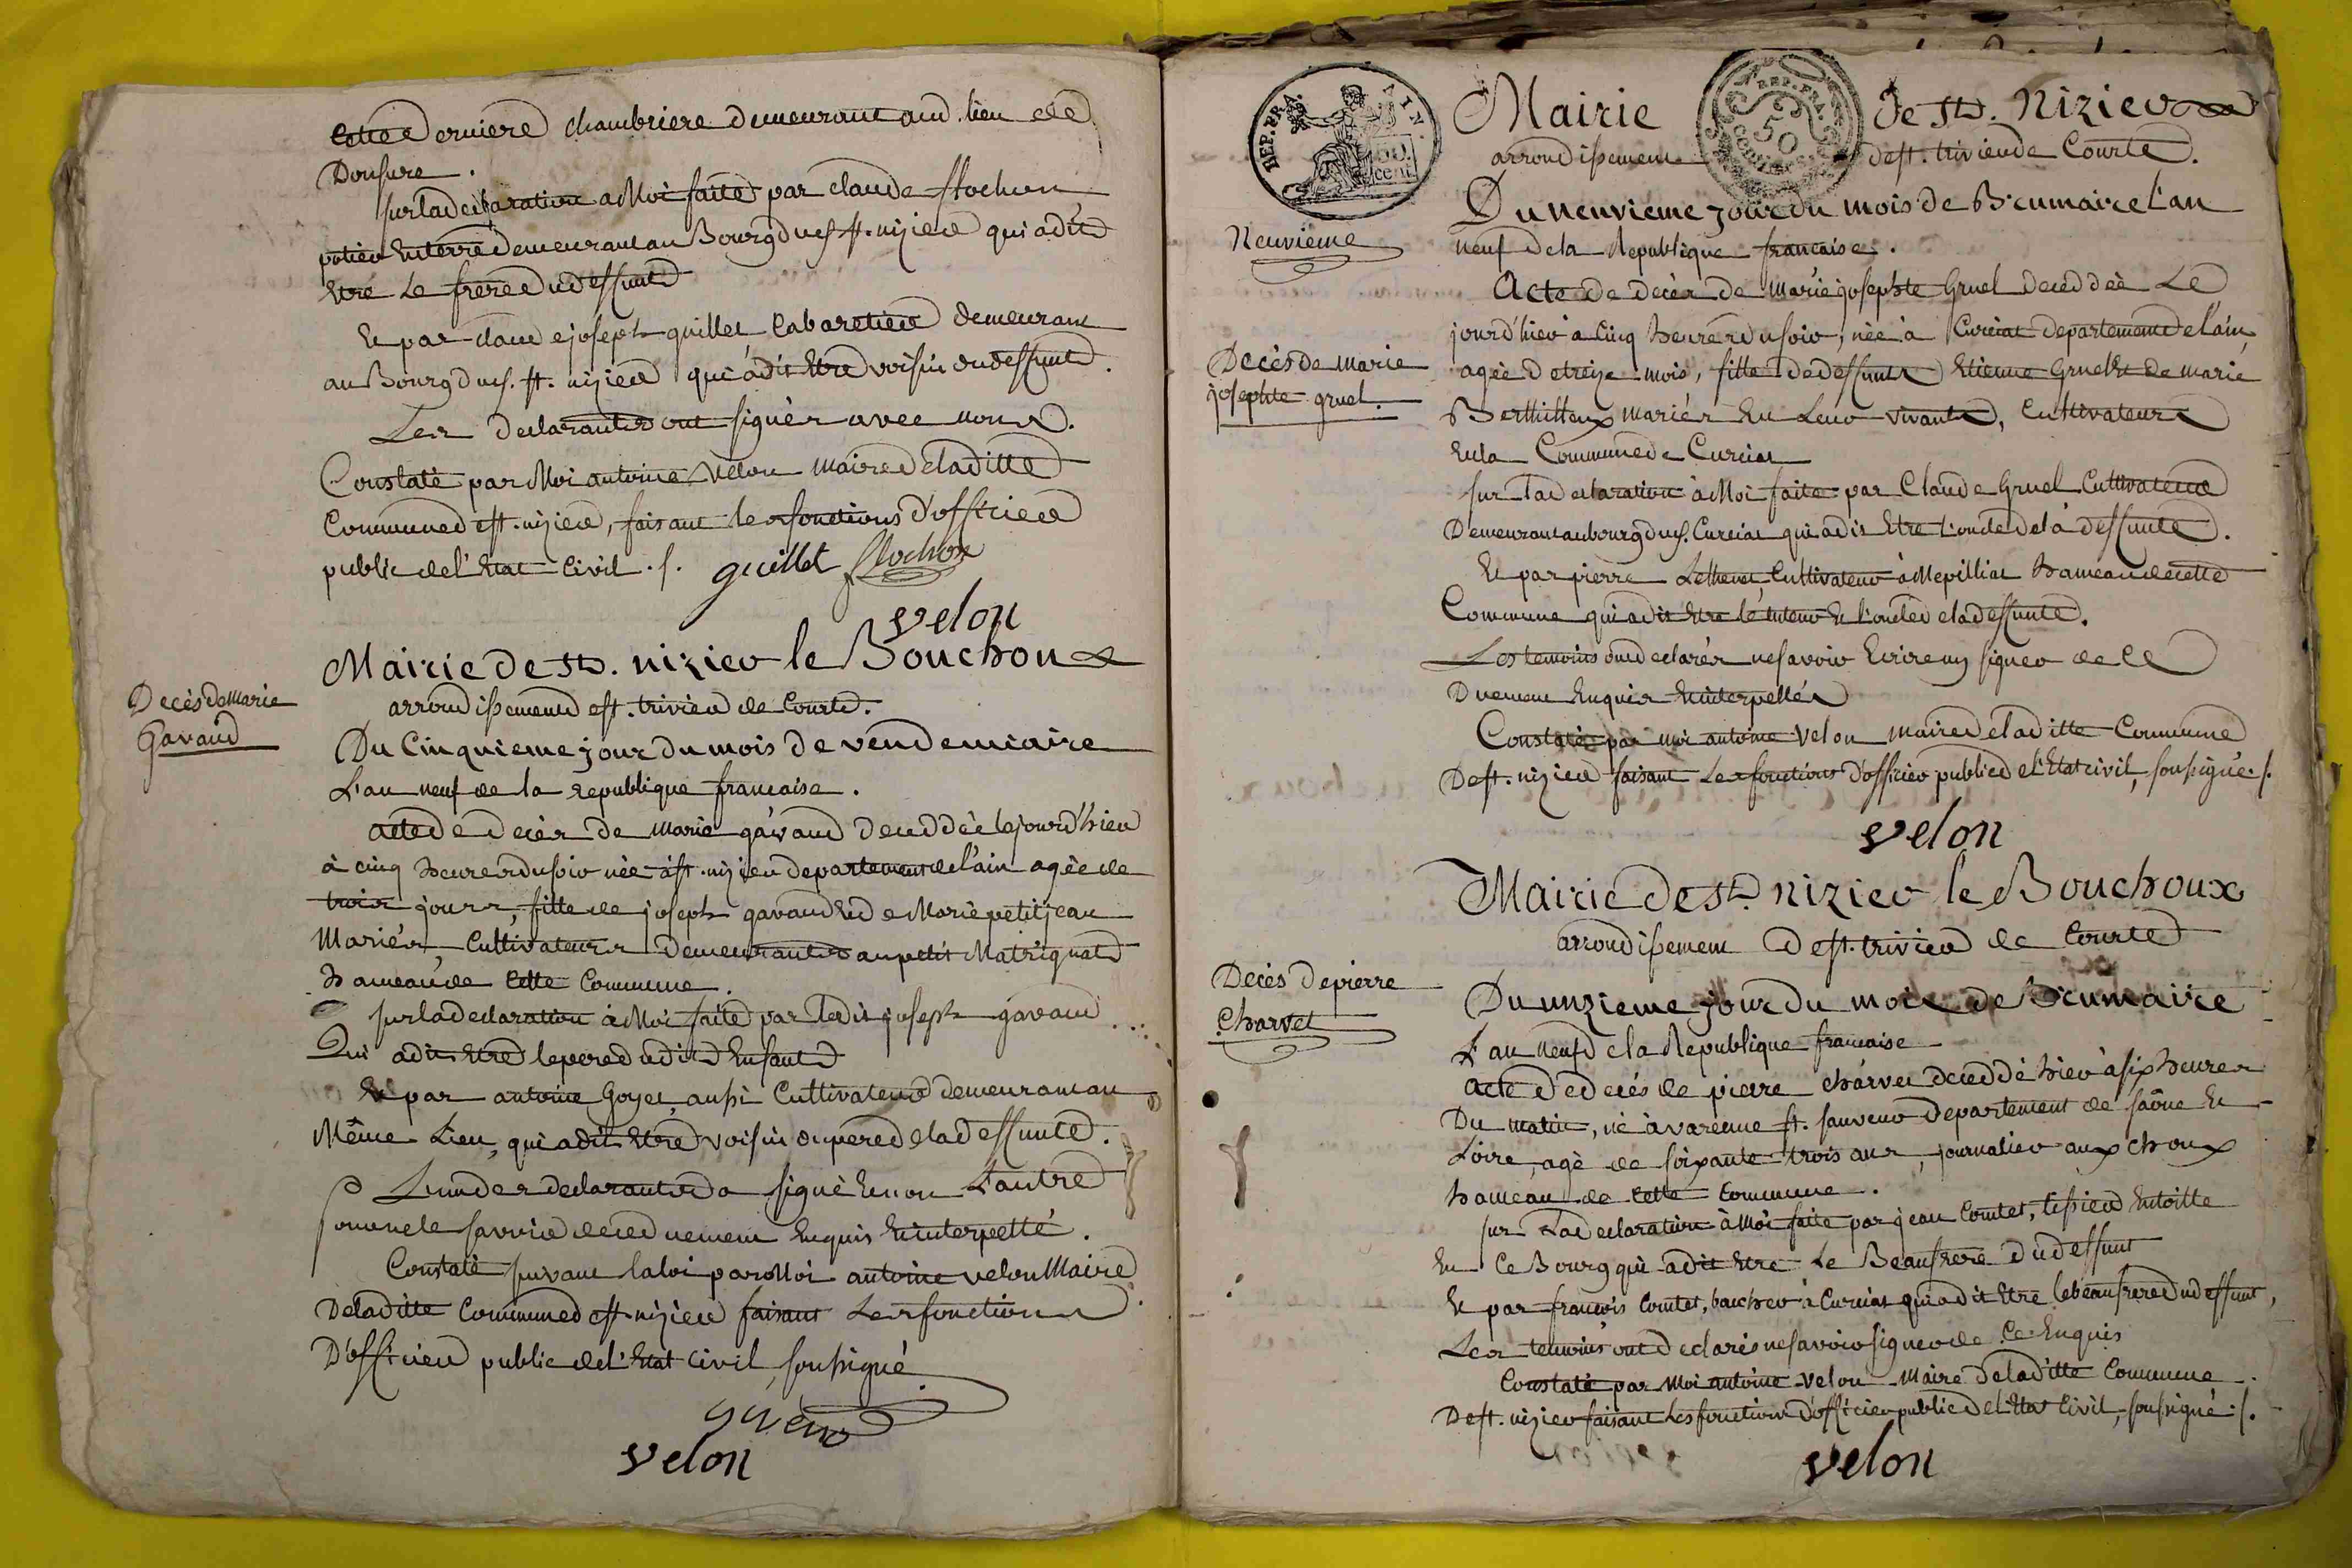 Cette Derniere chambriere demeurant aud. lieu de
Donsure.
sur la declaration a Moi faite par claude flochon
potier En terre Demeurant au Bourg dud. st. nizier qui a dit
Etre Le frere du deffunt
Et par claude joseph guillet, Cabaretier demeurant
au Bourg dud. st. nizier qui a dit Etre voisin du deffunt.
Les declarants ont signés avec nous.
Constaté par Moi antoine velon maire de la ditte
Commune de st. nizier, faisant les fonctions d'officier
public de l'Etat Civil ./. guillet flochon
velon
Mairie de st. nizier le Bouchoux
arrondissement de st. trivier de Courte.
Decès de Marie
Gavand
Du Cinquieme jour du mois de vendemiaire
L'an neuf de la republique francaise.
acte de decès de Marie gavand decedée le jour d'hier
à cinq heures du soir née à st. nizier departement de l'ain agée de
trois jours, fille de joseph gavand Et de Marie petitjean
Mariés, Cultivateurs Demeurants au petit Matrignat
hameau de Cette Commune.
sur la declaration à Moi faite par ledit joseph gavand
Qui a dit Etre le pere dudit Enfant
Et par antoine Goyet, aussi Cultivateur demeurant au
Même Lieu, qui a dit Etre voisin du pere de la deffunte.
L'un des declarants a signé Et non L'autre
pour ne le savoir de ce duement Enquis Et interpellé.
Constaté suivant la loi par Moi antoine velon Maire
De la ditte Commune de st. nizier faisant Les fonctions
D'officier public de l'Etat Civil, soussigné
velon
Neuvieme
Mairie de st. Nizier
REP. FRA. AIN. 50 cent.
REP. FRA. 50
arrondissement de st. trivier de Courte.
Du neuvieme jour du mois de Brumaire l'an
neuf de la Republique francaise.
Decès de marie
josephte gruel.
Acte de decès de Marie josephte Gruel decedée Le
jour d'hier à Cinq heures du soir, née à Curciat departement de l'ain,
agée de treize mois, fille de deffunts Etienne Gruel Et de marie
Berthilleux mariés En Leur vivants, Cultivateurs
En la Commune de Curciat
sur la declaration à Moi faite par Claude Gruel Cultivateur
Demeurant au bourg dud. Curciat qui a dit Etre l'oncle de la deffunte.
Et par pierre Cultivateur à Mepilliat hameau de cette
Commune qui a dit Etre le tuteur Et l'oncle de la deffunte.
Les temoins ont declarés ne savoir Ecrire ny signer de ce
Duement Enquis Et interpellés
Constaté par moi antoine velon maire de la ditte Commune
De st. nizier faisant Les fonctions d'officier public de l'Etat civil, soussigné ./.
velon
Mairie de st. nizier le Bouchoux
arrondissement de st. trivier de Courte
Decès de pierre
Charvet
Du unzieme jour du mois de Brumaire
L'an neuf de la Republique francaise
acte de decés de pierre charvet decedé hier à six heures
Du matin, né à varenne st. sauveur departement de saône Et
Loire, agé de soixante trois ans, journalier aux choux
hameau de cette Commune.
sur La declaration à Moi faite par jean Comtet, tissier En toille
En Ce Bourg qui a dit Etre Le Beaufrere du deffunt
Et par francois Comtet, boucher à Curciat qui a dit Etre le beaufrere du deffunt,
Les temoins ont declarés ne savoir signer de Ce Enquis
Constaté par Moi antoine velon Maire de la ditte Commune
De st. nizier faisant Les fonctions d'officier public de l'Etat Civil, soussigné ./.
velon